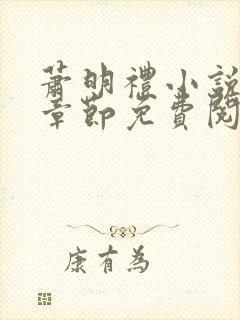 蕭明禮小說
章節免費閱
康有為